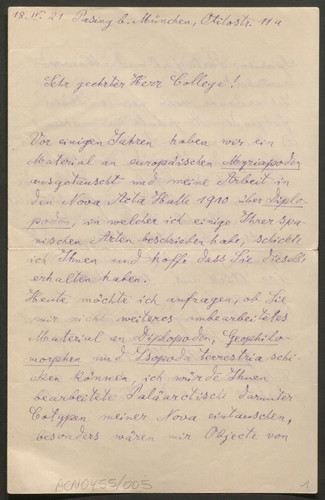 18. IV. 21 Pasing b. München, Otilostr. 11a
Sehr geehrter Herr College!
Vor einigen Jahren haben wir ein
Material an europäischen Myriapoden
ausgetauscht und meine Arbeit in
den Nova Acta Halle 1910 über Diplo-
poden, in welcher ich einige Ihrer spa-
nischen Arten beschrieben habe, schickte
ich Ihnen und hoffe dass Sie dieselbe
erhalten haben.
Heute möchte ich anfragen, ob Sie
mir nicht weiteres unbearbeitetes
Material an Diplopoden, Geophilo-
morphen und Isopoda terrestria schi-
cken können, ich würde Ihnen
bearbeitete Paläarctische darunter
Cotypen meiner Nova eintauschen,
besonders wären mir Objecte von
ACN0455/005
1